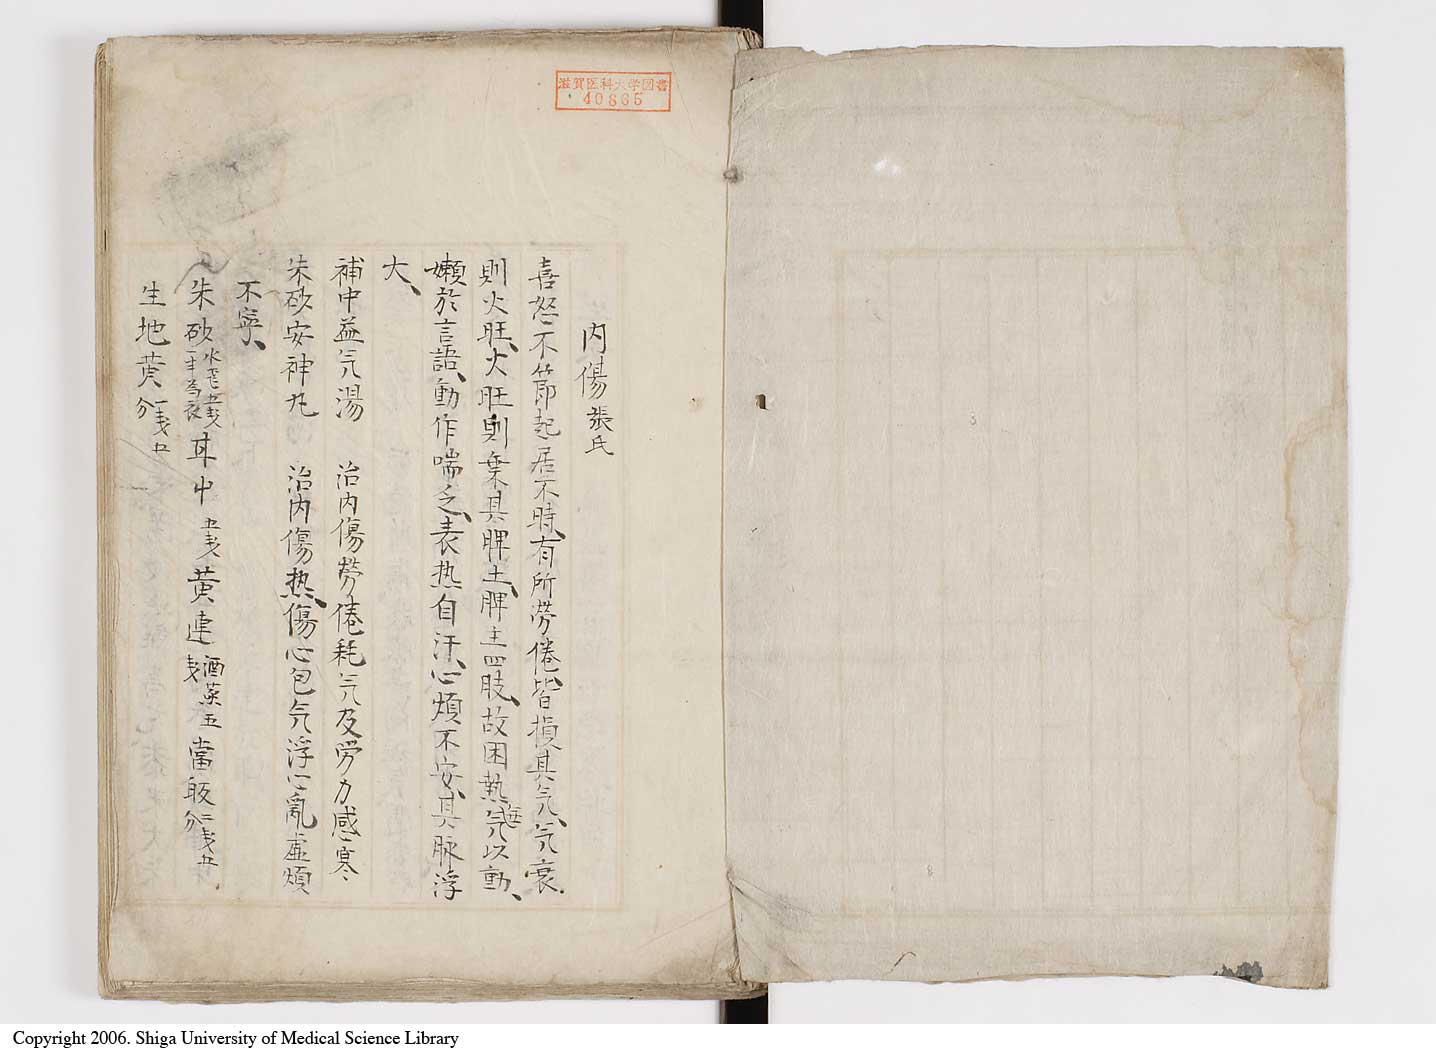 滋賀医科大学図書
40865
内傷 張氏
喜怒不節起居不時、有所労倦、皆損其気、気衰
則火旺、火旺則乗其脾土、脾主四肢、故困熱無気以動、
嬾於言語、動作喘乏、表热自汗、心煩不安、其脉浮
大、
補中益气湯 治内傷勞倦耗气及勞力感寒
朱砂安神丸 治内傷热、傷心包气浮心亂虚煩
不寧、
朱砂 甘中 黄連 當皈
生地黄
Copyright 2006. Shiga University of Medical Science Library